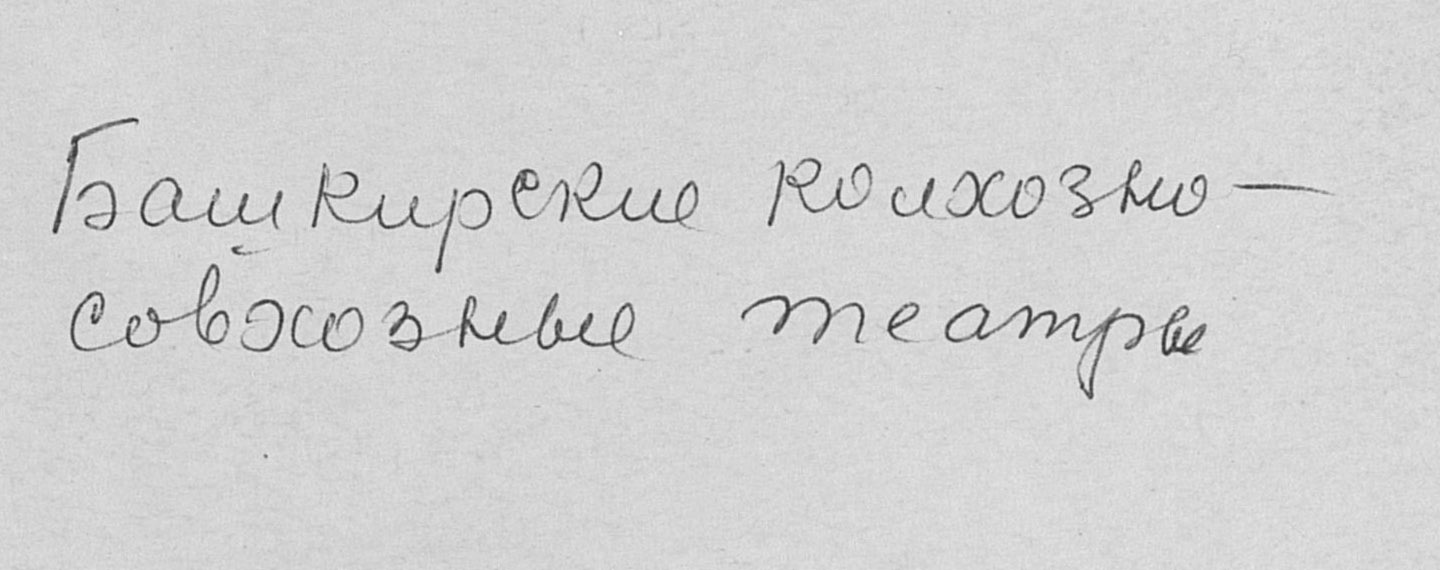 Башкирские колхозно–
совхозные театры